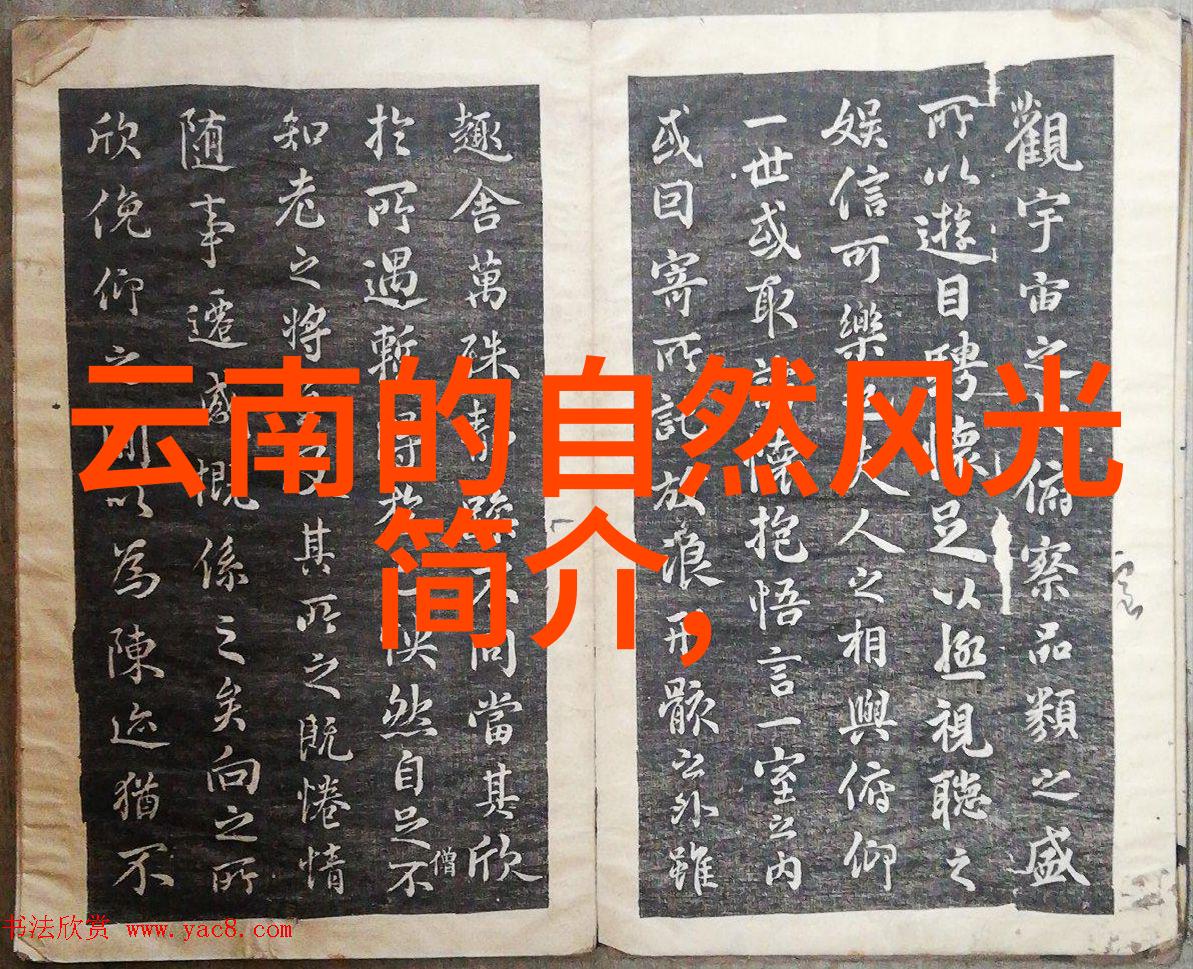 云南的自然风光
简介,
觀宇宙之俯察品類之盛
所以遊目騁懷足以極視聽之
娛信可樂夫人之相與俯仰
一世或取諸懷抱悟言一室之內
或因寄所託放浪形骸之外雖
趣舍萬殊靜躁不同當其欣
於所遇暫得於快然自足不
僧
知老之將其所之既惓情
随事遷感慨係之矣向之所
欣俛仰之間以為陳迹猶不
书法欣赏 www.yac8.com